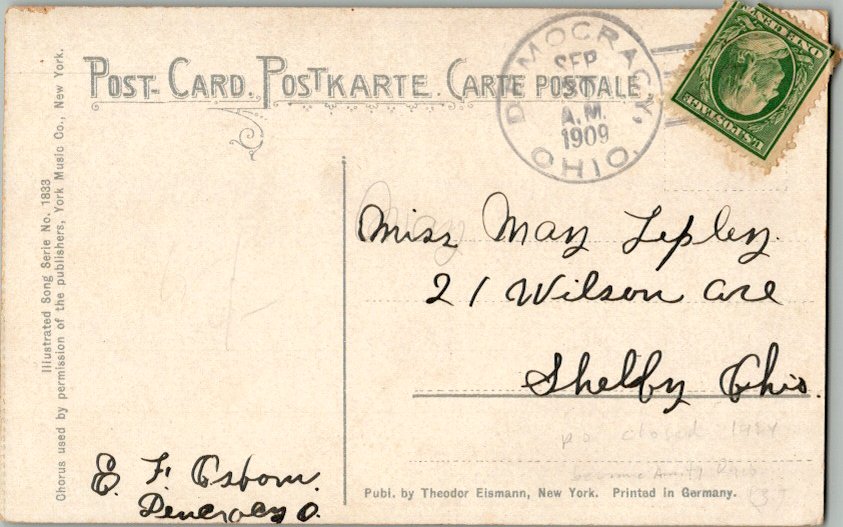 POST-CARD. POSTKARTE. CARTE POSTALE.
DEMOCRACY,
SEP
30
A.M.
1909
OHIO.
U.S. POSTAGE
ONE CENT
Illustrated Song Serie No. 1833
Chorus used by permission of the publishers, York Music Co., New York.
May
Miss May Lepley.
21 Wilson Ave
Shelby Ohio.
p.o. closed 19
became Amity
E. F. Osborn.
O.
Publ. by Theodor Eismann, New York. Printed in Germany.